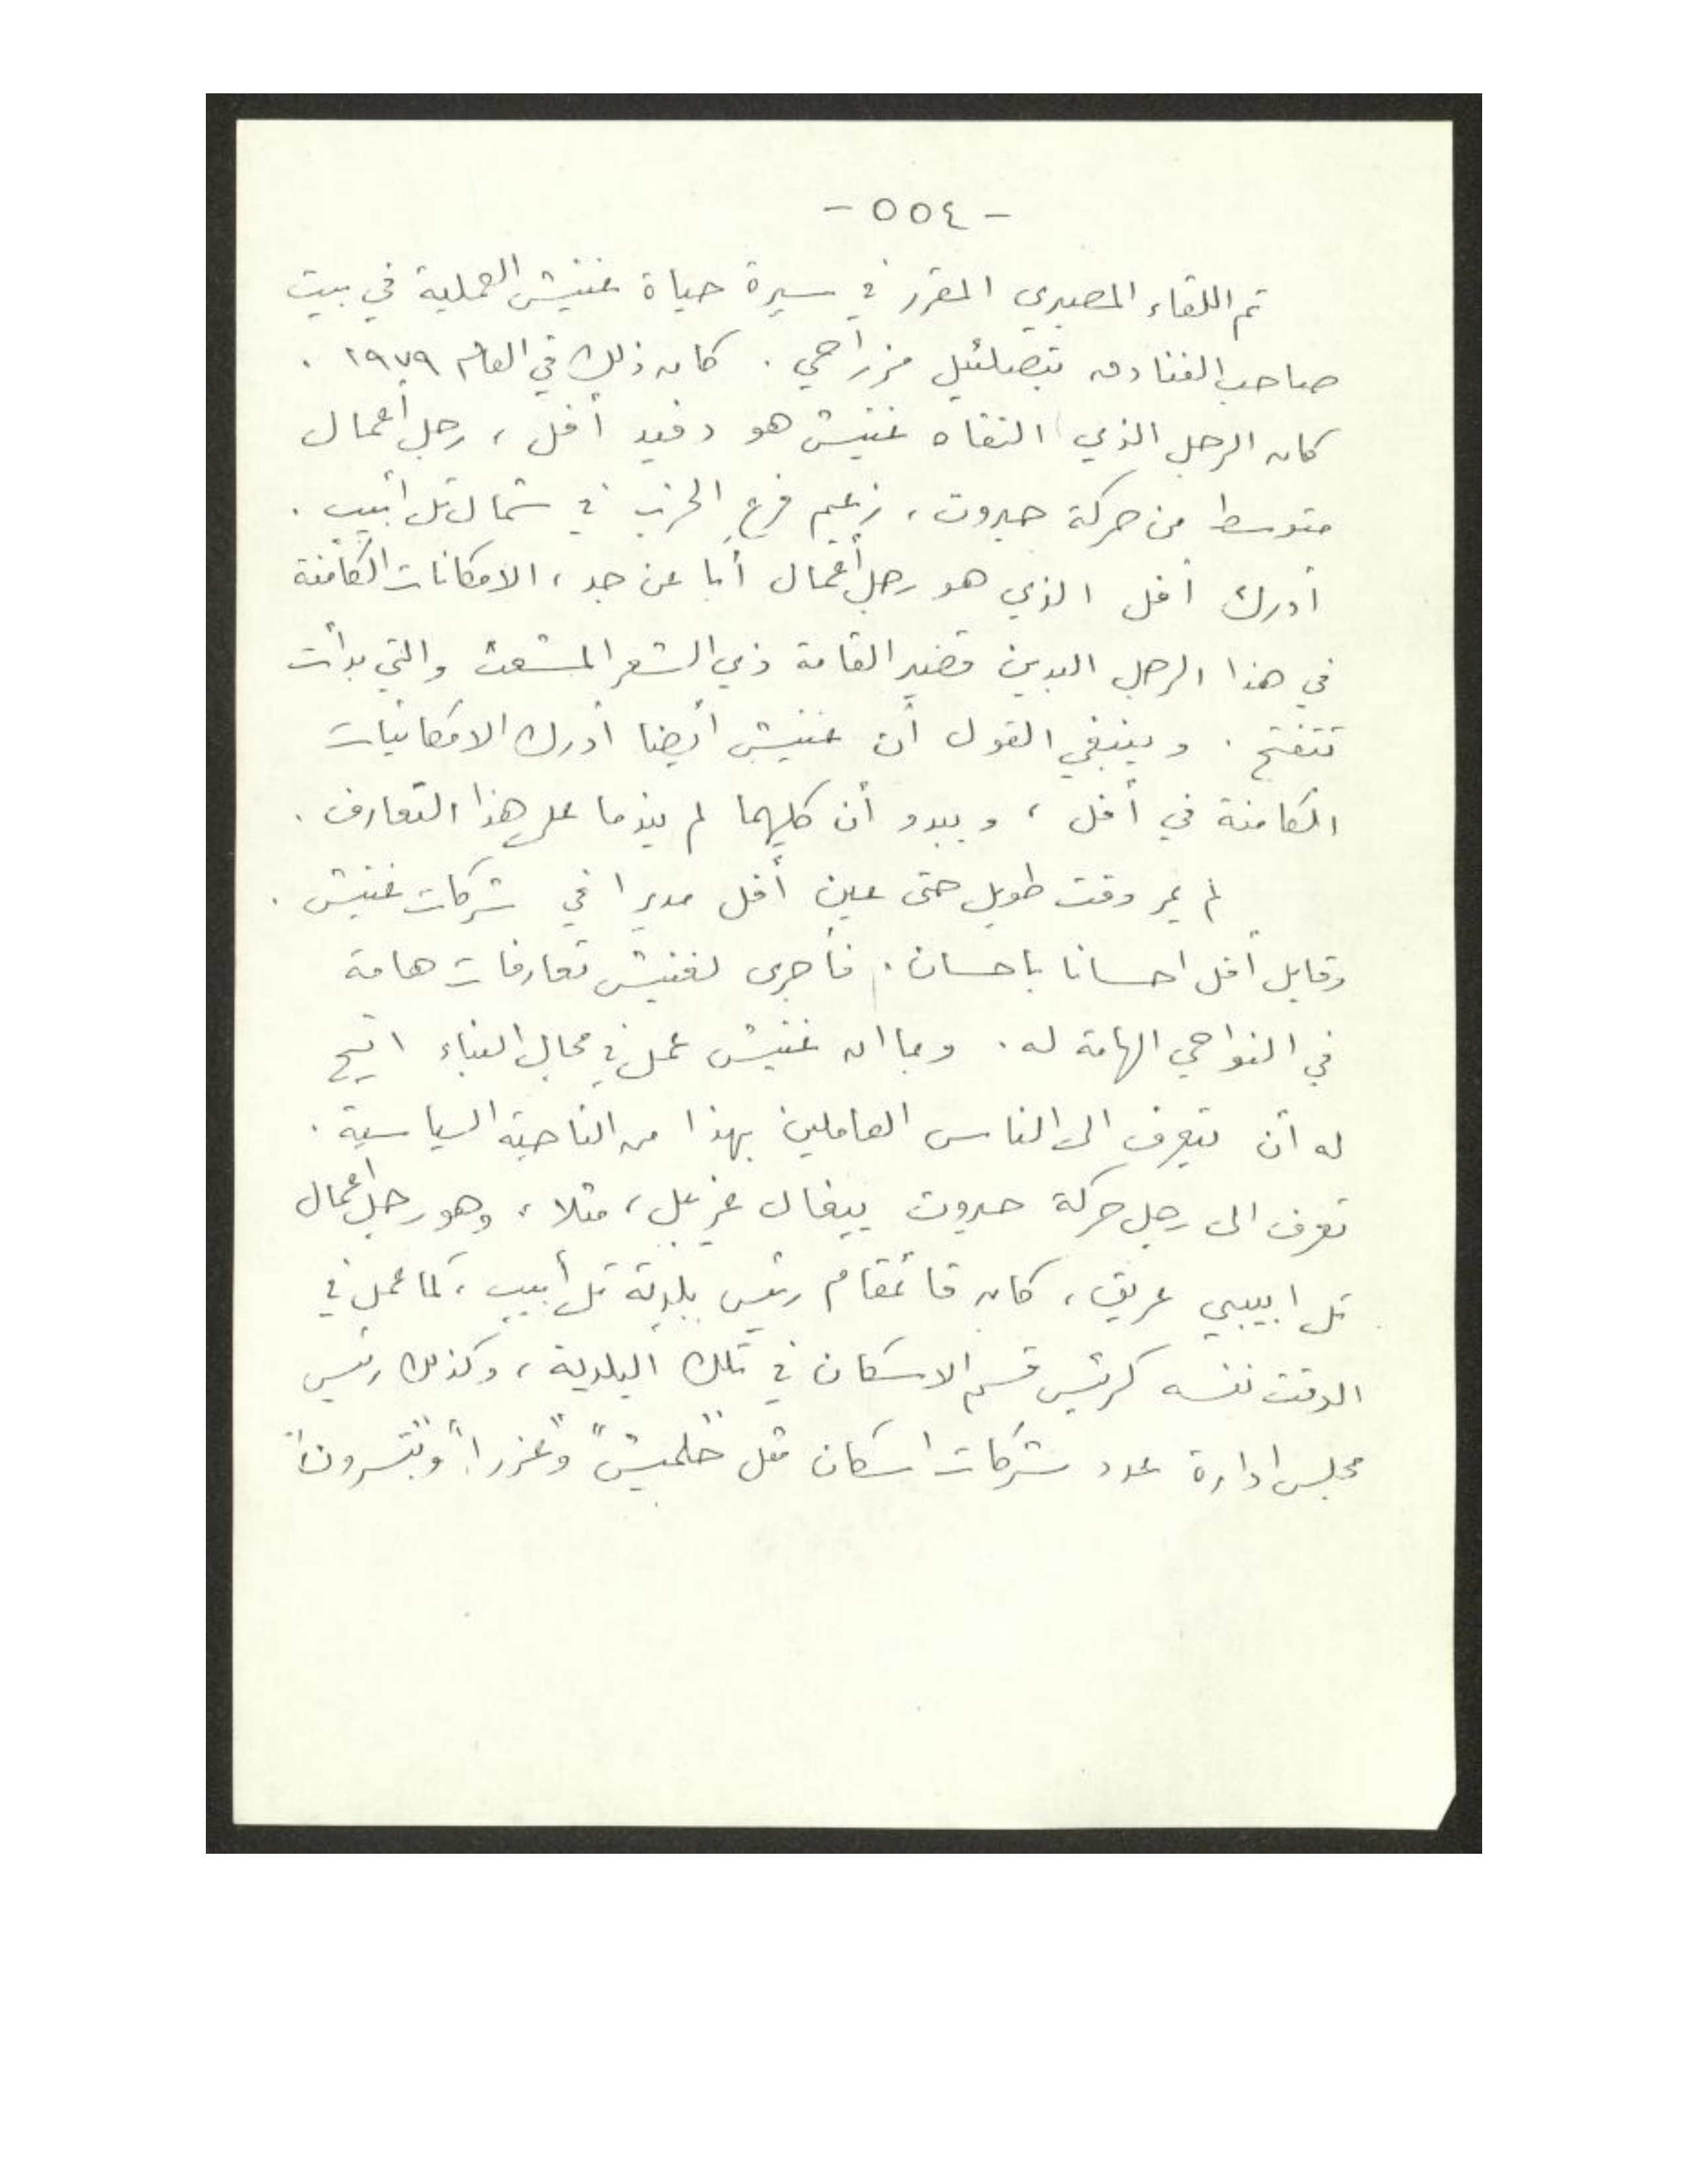 - ٥٥٤ -
تم اللقاء المصيري المقرر في سيرة حياة غنيش العملية في بيت
صاحب الفنادق بتصلئيل مزراحي . كان ذلك في العام ١٩٧٩ .
كان الرجل الذي التقاه غنيش هو دفيد أفل ، رجل أعمال
متوسط من حركة حيروت ، زعيم فرع الحزب في شمال تل أبيب .
أدرك أفل الذي هو رجل أعمال أبا عن جد ، الامكانات الكامنة
في هذا الرجل البدين قصير القامة ذي الشعر المشعث والتي بدأت
تتفتح . وينبغي القول أن غنيش أيضا أدرك الامكانيات
الكامنة في أفل ، ويبدو أن كليهما لم يندما على هذا التعارف .
لم يمر وقت طويل حتى عين أفل مديرا في شركات غنيش .
وقابل أفل احسانا باحسان . فأجرى لغنيش تعارفات هامة
في النواحي الهامة له . وبما ان غنيش عمل في مجال البناء اتيح
له أن يتعرف الى الناس العاملين بهذا من الناحية السياسية .
تعرف الى رجل حركة حيروت ييغال غريفل ، مثلا ، وهو رجل أعمال
تل ابيبي عريق ، كان قائمقام رئيس بلدية تل أبيب ، كما عمل في
الوقت نفسه كرئيس قسم الاسكان في تلك البلدية ، وكذلك رئيس
مجلس ادارة عدد شركات اسكان مثل "حلميش" و"عزرا" و"بتسرون"